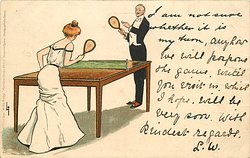 I am not sure
whether it is
my turn, anyhow
we will propose
the game, until
you visit us, which
I hope, will be
very soon. With
Kindest regards.
L.W.